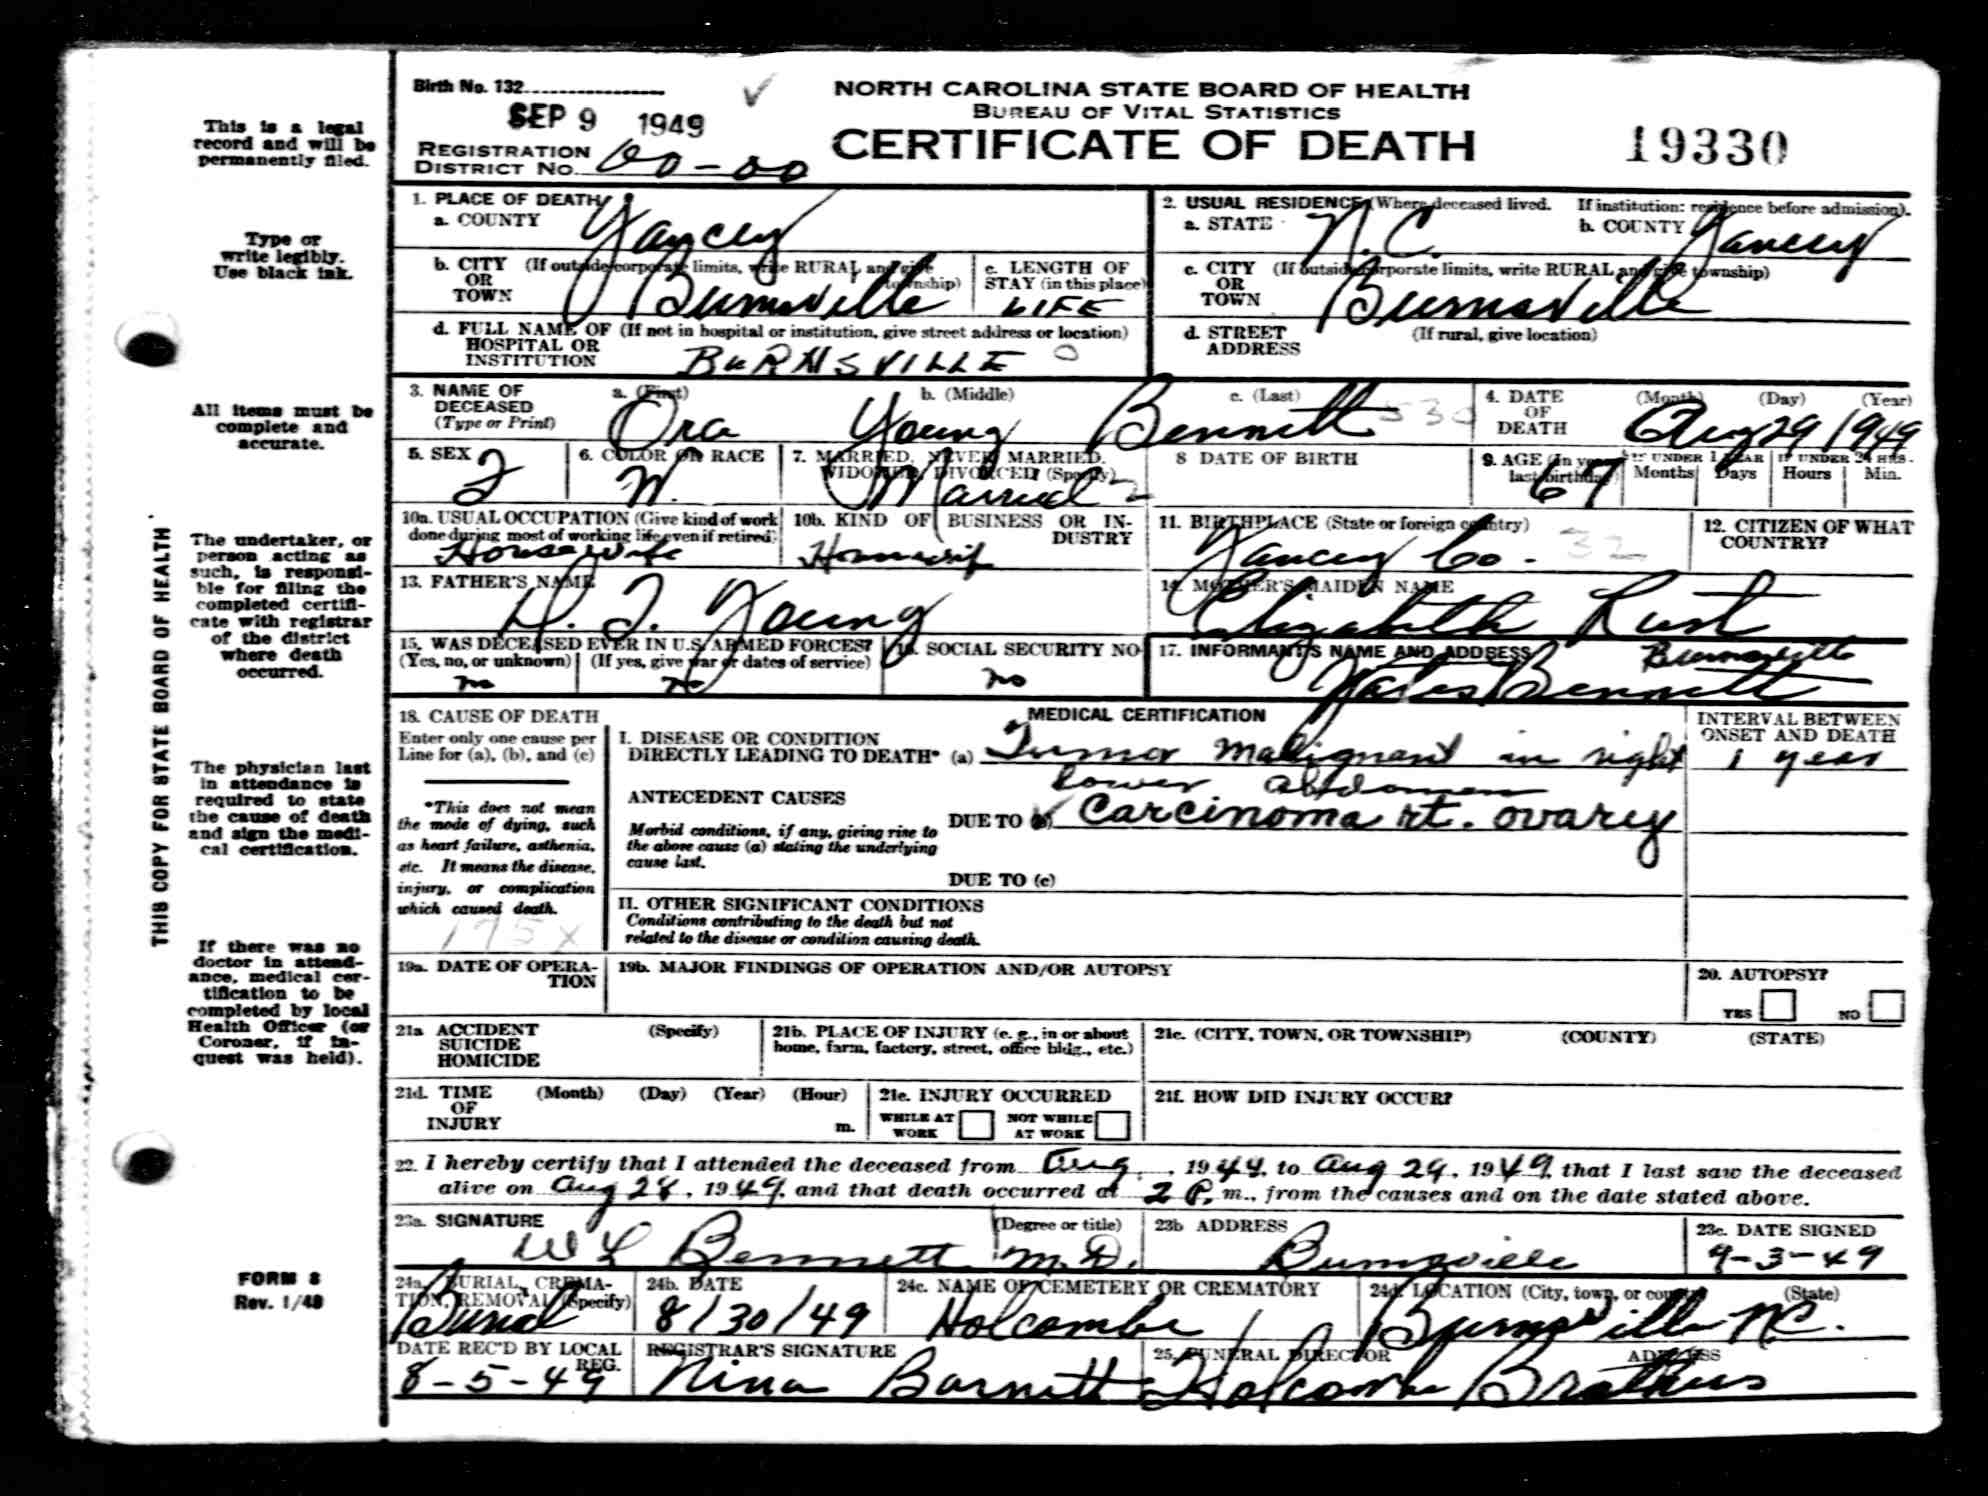 Birth No. 132
SEP 9 1949
REGISTRATION
DISTRICT No. 00-00
NORTH CAROLINA STATE BOARD OF HEALTH
BUREAU OF VITAL STATISTICS
CERTIFICATE OF DEATH
19330
This is a legal
record and will be
permanently filed.
Type or
write legibly.
Use black ink.
All items must be
complete and
accurate.
The undertaker, or
person acting as
such, is responsi-
ble for filing the
completed certifi-
cate with registrar
of the district
where death
occurred.
The physician last
in attendance is
required to state
the cause of death
and sign the medi-
cal certification.
If there was no
doctor in attend-
ance, medical cer-
tification to be
completed by local
Health Officer (or
Coroner, if in-
quest was held).
FORM 8
Rev. 1/48
THIS COPY FOR STATE BOARD OF HEALTH
1. PLACE OF DEATH
a. COUNTY Yancey
2. USUAL RESIDENCE (Where deceased lived. If institution: residence before admission).
a. STATE N.C. b. COUNTY Yancey
b. CITY (If outside corporate limits, write RURAL and give township)
OR
TOWN Burnsville
c. LENGTH OF
STAY (in this place)
LIFE
c. CITY (If outside corporate limits, write RURAL and give township)
OR
TOWN Burnsville
d. FULL NAME OF (If not in hospital or institution, give street address or location)
HOSPITAL OR
INSTITUTION BURNSVILLE 0
d. STREET (If rural, give location)
ADDRESS
3. NAME OF a. (First) b. (Middle) c. (Last)
DECEASED
(Type or Print) Ora Young Bennett 530
4. DATE (Month) (Day) (Year)
OF
DEATH Aug 29 1949
5. SEX
F
6. COLOR OR RACE
W.
7. MARRIED, NEVER MARRIED,
WIDOWED, DIVORCED (Specify)
Married 2
8 DATE OF BIRTH
9. AGE (In years IF UNDER 1 YEAR IF UNDER 24 HRS.
last birthday) Months Days Hours Min.
67
10a. USUAL OCCUPATION (Give kind of work
done during most of working life, even if retired)
Housewife
10b. KIND OF BUSINESS OR IN-
DUSTRY
Housewife
11. BIRTHPLACE (State or foreign country)
Yancey Co. 32
12. CITIZEN OF WHAT
COUNTRY?
13. FATHER'S NAME
D. T. Young
14. MOTHER'S MAIDEN NAME
Elizabeth Rust
15. WAS DECEASED EVER IN U.S. ARMED FORCES?
(Yes, no, or unknown) (If yes, give war or dates of service)
no no
16. SOCIAL SECURITY NO
no
17. INFORMANT'S NAME AND ADDRESS
Burnsville
Yates Bennett
18. CAUSE OF DEATH
Enter only one cause per
Line for (a), (b), and (c)
*This does not mean
the mode of dying, such
as heart failure, asthenia,
etc. It means the disease,
injury, or complication
which caused death.
175X
MEDICAL CERTIFICATION
I. DISEASE OR CONDITION
DIRECTLY LEADING TO DEATH* (a) Tumor malignant in right
lower abdomen
ANTECEDENT CAUSES
DUE TO (b) Carcinoma rt. ovarey
Morbid conditions, if any, giving rise to
the above cause (a) stating the underlying
cause last.
DUE TO (c)
INTERVAL BETWEEN
ONSET AND DEATH
1 year
II. OTHER SIGNIFICANT CONDITIONS
Conditions contributing to the death but not
related to the disease or condition causing death.
19a. DATE OF OPERA-
TION
19b. MAJOR FINDINGS OF OPERATION AND/OR AUTOPSY
20. AUTOPSY?
YES NO
21a ACCIDENT (Specify)
SUICIDE
HOMICIDE
21b. PLACE OF INJURY (e. g., in or about
home, farm, factory, street, office bldg., etc.)
21c. (CITY, TOWN, OR TOWNSHIP) (COUNTY) (STATE)
21d. TIME (Month) (Day) (Year) (Hour)
OF
INJURY m.
21e. INJURY OCCURRED
WHILE AT WORK NOT WHILE AT WORK
21f. HOW DID INJURY OCCUR?
22. I hereby certify that I attended the deceased from Aug. , 1949, to Aug 29, 1949, that I last saw the deceased
alive on Aug 28, 1949, and that death occurred at 2 P. m., from the causes and on the date stated above.
23a. SIGNATURE (Degree or title)
W L Bennett M.D.
23b ADDRESS
Burnsville
23c. DATE SIGNED
9-3-49
24a. BURIAL, CREMA-
TION, REMOVAL (Specify)
Burial
24b. DATE
8/30/49
24c. NAME OF CEMETERY OR CREMATORY
Holcombe
24d. LOCATION (City, town, or county) (State)
Burnsville N.C.
DATE REC'D BY LOCAL
REG.
8-5-49
REGISTRAR'S SIGNATURE
Nina Barnett
25. FUNERAL DIRECTOR ADDRESS
Holcombe Brothers